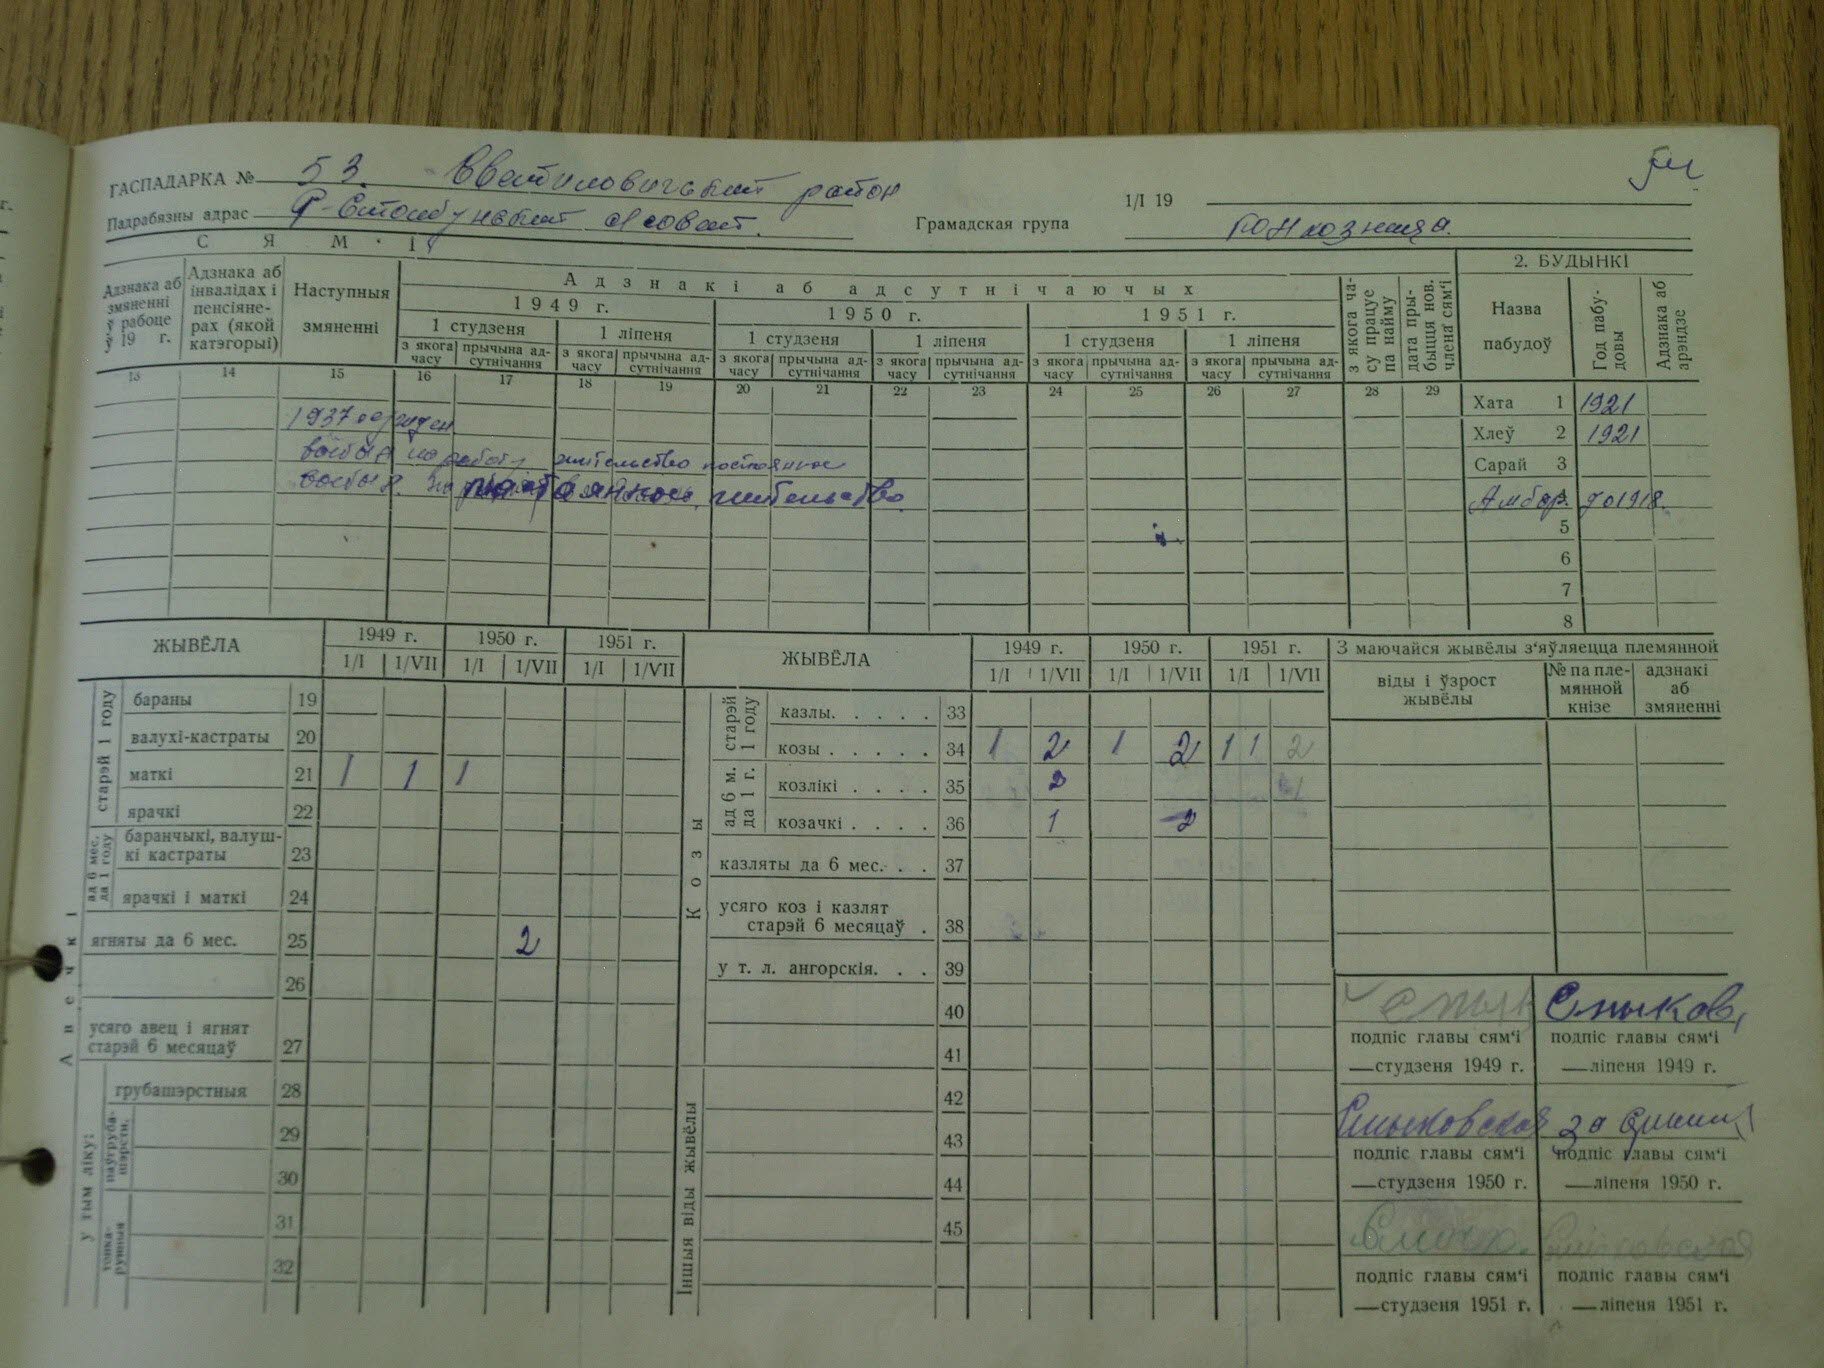 ГАСПАДАРКА № 53. район
Падрабязны адрас
1/I 19
Грамадская група
СЯМ'І
Адзнака аб змяненні ў рабоце ў 19 г.
Адзнака аб інвалідах і пенсіянерах (якой катэгорыі)
Наступныя змяненні
Адзнакі аб адсутнічаючых
1949 г. 1950 г. 1951 г.
1 студзеня 1 ліпеня 1 студзеня 1 ліпеня 1 студзеня 1 ліпеня
з якога часу прычына адсутнічання з якога часу прычына адсутнічання з якога часу прычына адсутнічання з якога часу прычына адсутнічання з якога часу прычына адсутнічання з якога часу прычына адсутнічання
з якога часу працуе па найму
дата прыбыцця нов. члена сям'і
2. БУДЫНКІ
Назва пабудоў
Год пабудовы
Адзнака аб арэндзе
13 14 15 16 17 18 19 20 21 22 23 24 25 26 27 28 29
Хата 1 1921
Хлеў 2 1921
Сарай 3
Амбар. 4 до 1918.
5
6
7
8
1937
жительство постоянное
жительство
ЖЫВЁЛА
1949 г. 1950 г. 1951 г.
1/I 1/VII 1/I 1/VII 1/I 1/VII
Авечкі
старэй 1 году
бараны 19
валухі-кастраты 20
маткі 21 1 1 1
ярачкі 22
ад 6 мес. да 1 году
баранчыкі, валушкі кастраты 23
ярачкі і маткі 24
ягняты да 6 мес. 25 2
26
усяго авец і ягнят старэй 6 месяцаў 27
у тым ліку:
грубашэрстныя 28
паўгрубашэрсти.
29
30
тонкарунныя
31
32
ЖЫВЁЛА
1949 г. 1950 г. 1951 г.
1/I 1/VII 1/I 1/VII 1/I 1/VII
Козы
старэй 1 году
казлы. . . . . 33
козы . . . . . 34 1 2 1 2 1 1 2
ад 6 м. да 1 г.
козлікі . . . . 35 2
козачкі . . . . 36 1 2
казляты да 6 мес. . . 37
усяго коз і казлят
старэй 6 месяцаў . 38
у т. л. ангорскія. . . 39
40
41
Іншыя віды жывёлы
42
43
44
45
З маючайся жывёлы з'яўляецца племянной
віды і ўзрост жывёлы
№ па племянной кнізе
адзнакі аб змяненні
подпіс главы сям'і подпіс главы сям'і
—студзеня 1949 г. —ліпеня 1949 г.
подпіс главы сям'і подпіс главы сям'і
—студзеня 1950 г. —ліпеня 1950 г.
подпіс главы сям'і подпіс главы сям'і
—студзеня 1951 г. —ліпеня 1951 г.